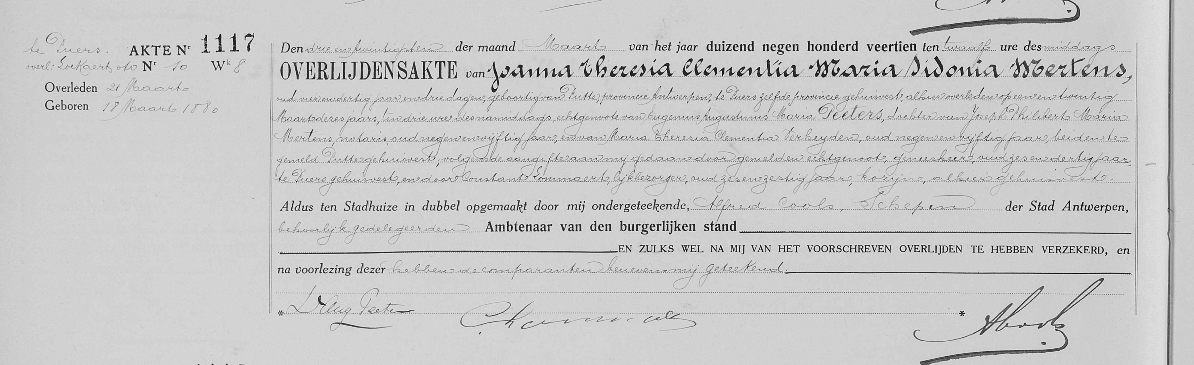 te Puers. AKTE Nr 1117
Nr 10 Wk 8
Overleden 21 Maart
Geboren 18 Maart 1880
Den drie en twintigsten der maand Maart van het jaar duizend negen honderd veertien ten twaalf ure des middags
OVERLIJDENSAKTE van Joanna Theresia Clementia Maria Sidonia Mertens,
oud vierendertig jaar en drie dagen, geboortig van Putte, provincie Antwerpen, te Puers zelfde provincie gehuisvest, alhier overleden op eenentwintig
Maart dezes jaars, ten drie ure des namiddags, echtgenote van Eugenius Augustinus Maria Peeters, dochter van Joseph Philibert Maria
Mertens, notaris oud negenenvijftig jaar, en van Maria Theresia Clementia Verheyden, oud negenenvijftig jaar, beiden te
gemeld Putte gehuisvest, volgens de aangifte aan mij gedaan door gemelden echtgenoot, geneesheer, oud zesendertig jaar
te Puers gehuisvest, en door Constant lijkbezorger, oud zesenzestig jaar, kozijn, alhier gehuisvest.
Aldus ten Stadhuize in dubbel opgemaakt door mij ondergeteekende, Alfred Cools, Schepen der Stad Antwerpen,
behoorlijk gedelegeerden Ambtenaar van den burgerlijken stand
EN ZULKS WEL NA MIJ VAN HET VOORSCHREVEN OVERLIJDEN TE HEBBEN VERZEKERD, en
na voorlezing dezer hebben de comparanten benevens mij geteekend.
* *